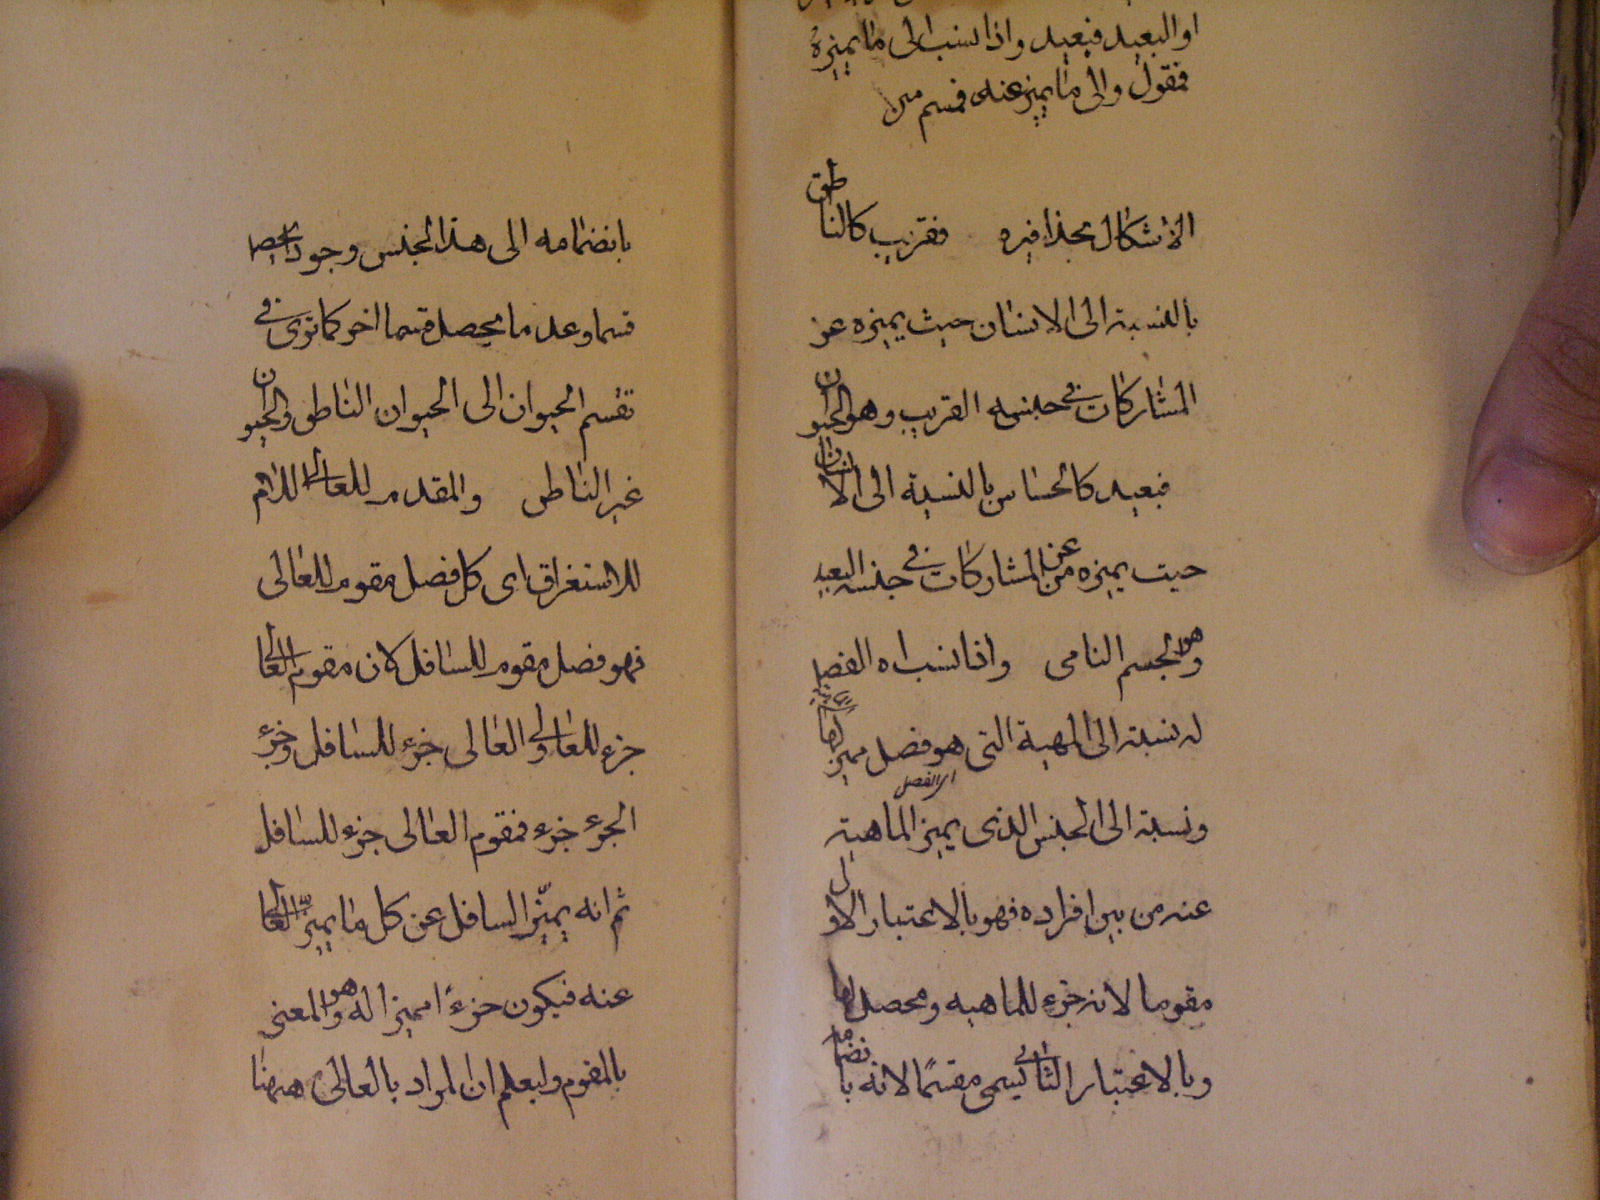 او البعيد فبعيد واذا نسب الى ما يميزه
فمقول والى ما يميز عنه فمقسم
الاشكال بحذافيره فقريب كالناطق
بالنسبة الى الانسان حيث يميزه عن
المشاركات في جنسه القريب وهو الحيوان
فبعيد كالحساس بالنسبة الى الانسان
حيث يميزه عن المشاركات في جنسه البعيد
وهو الجسم النامى واذا نسب اه الفصل
له نسبة الى المهية التى هو فصل مميز لها
اى الفصل
ونسبة الى الجنس الذى يميز الماهية
عنه من بين افراده فهو بالاعتبار الاول
مقوما لانه جزء للماهيه ومحصل لها
وبالاعتبار الثانى يسمى مقسمًا لانه بانضمامه
بانضمامه الى هذا الجنس وجودا يحصل
قسما وعدما يحصل قسما اخر كما ترى في
تقسيم الحيوان الى الحيوان الناطق والحيوان
غير الناطق والمقدم للعالى اللام
للاستغراق اى كل فصل مقوم للعالى
فهو فصل مقوم للسافل لان مقوم العالى
جزء للعالى والعالى جزء للسافل وجزء
الجزء جزء فمقوم العالى جزء للسافل
ثم انه يميّز السافل عن كل ما يميّز العالى
عنه فيكون جزءًا مميزا له وهو المعنى
بالمقوم وليعلم ان المراد بالعالى ههنا